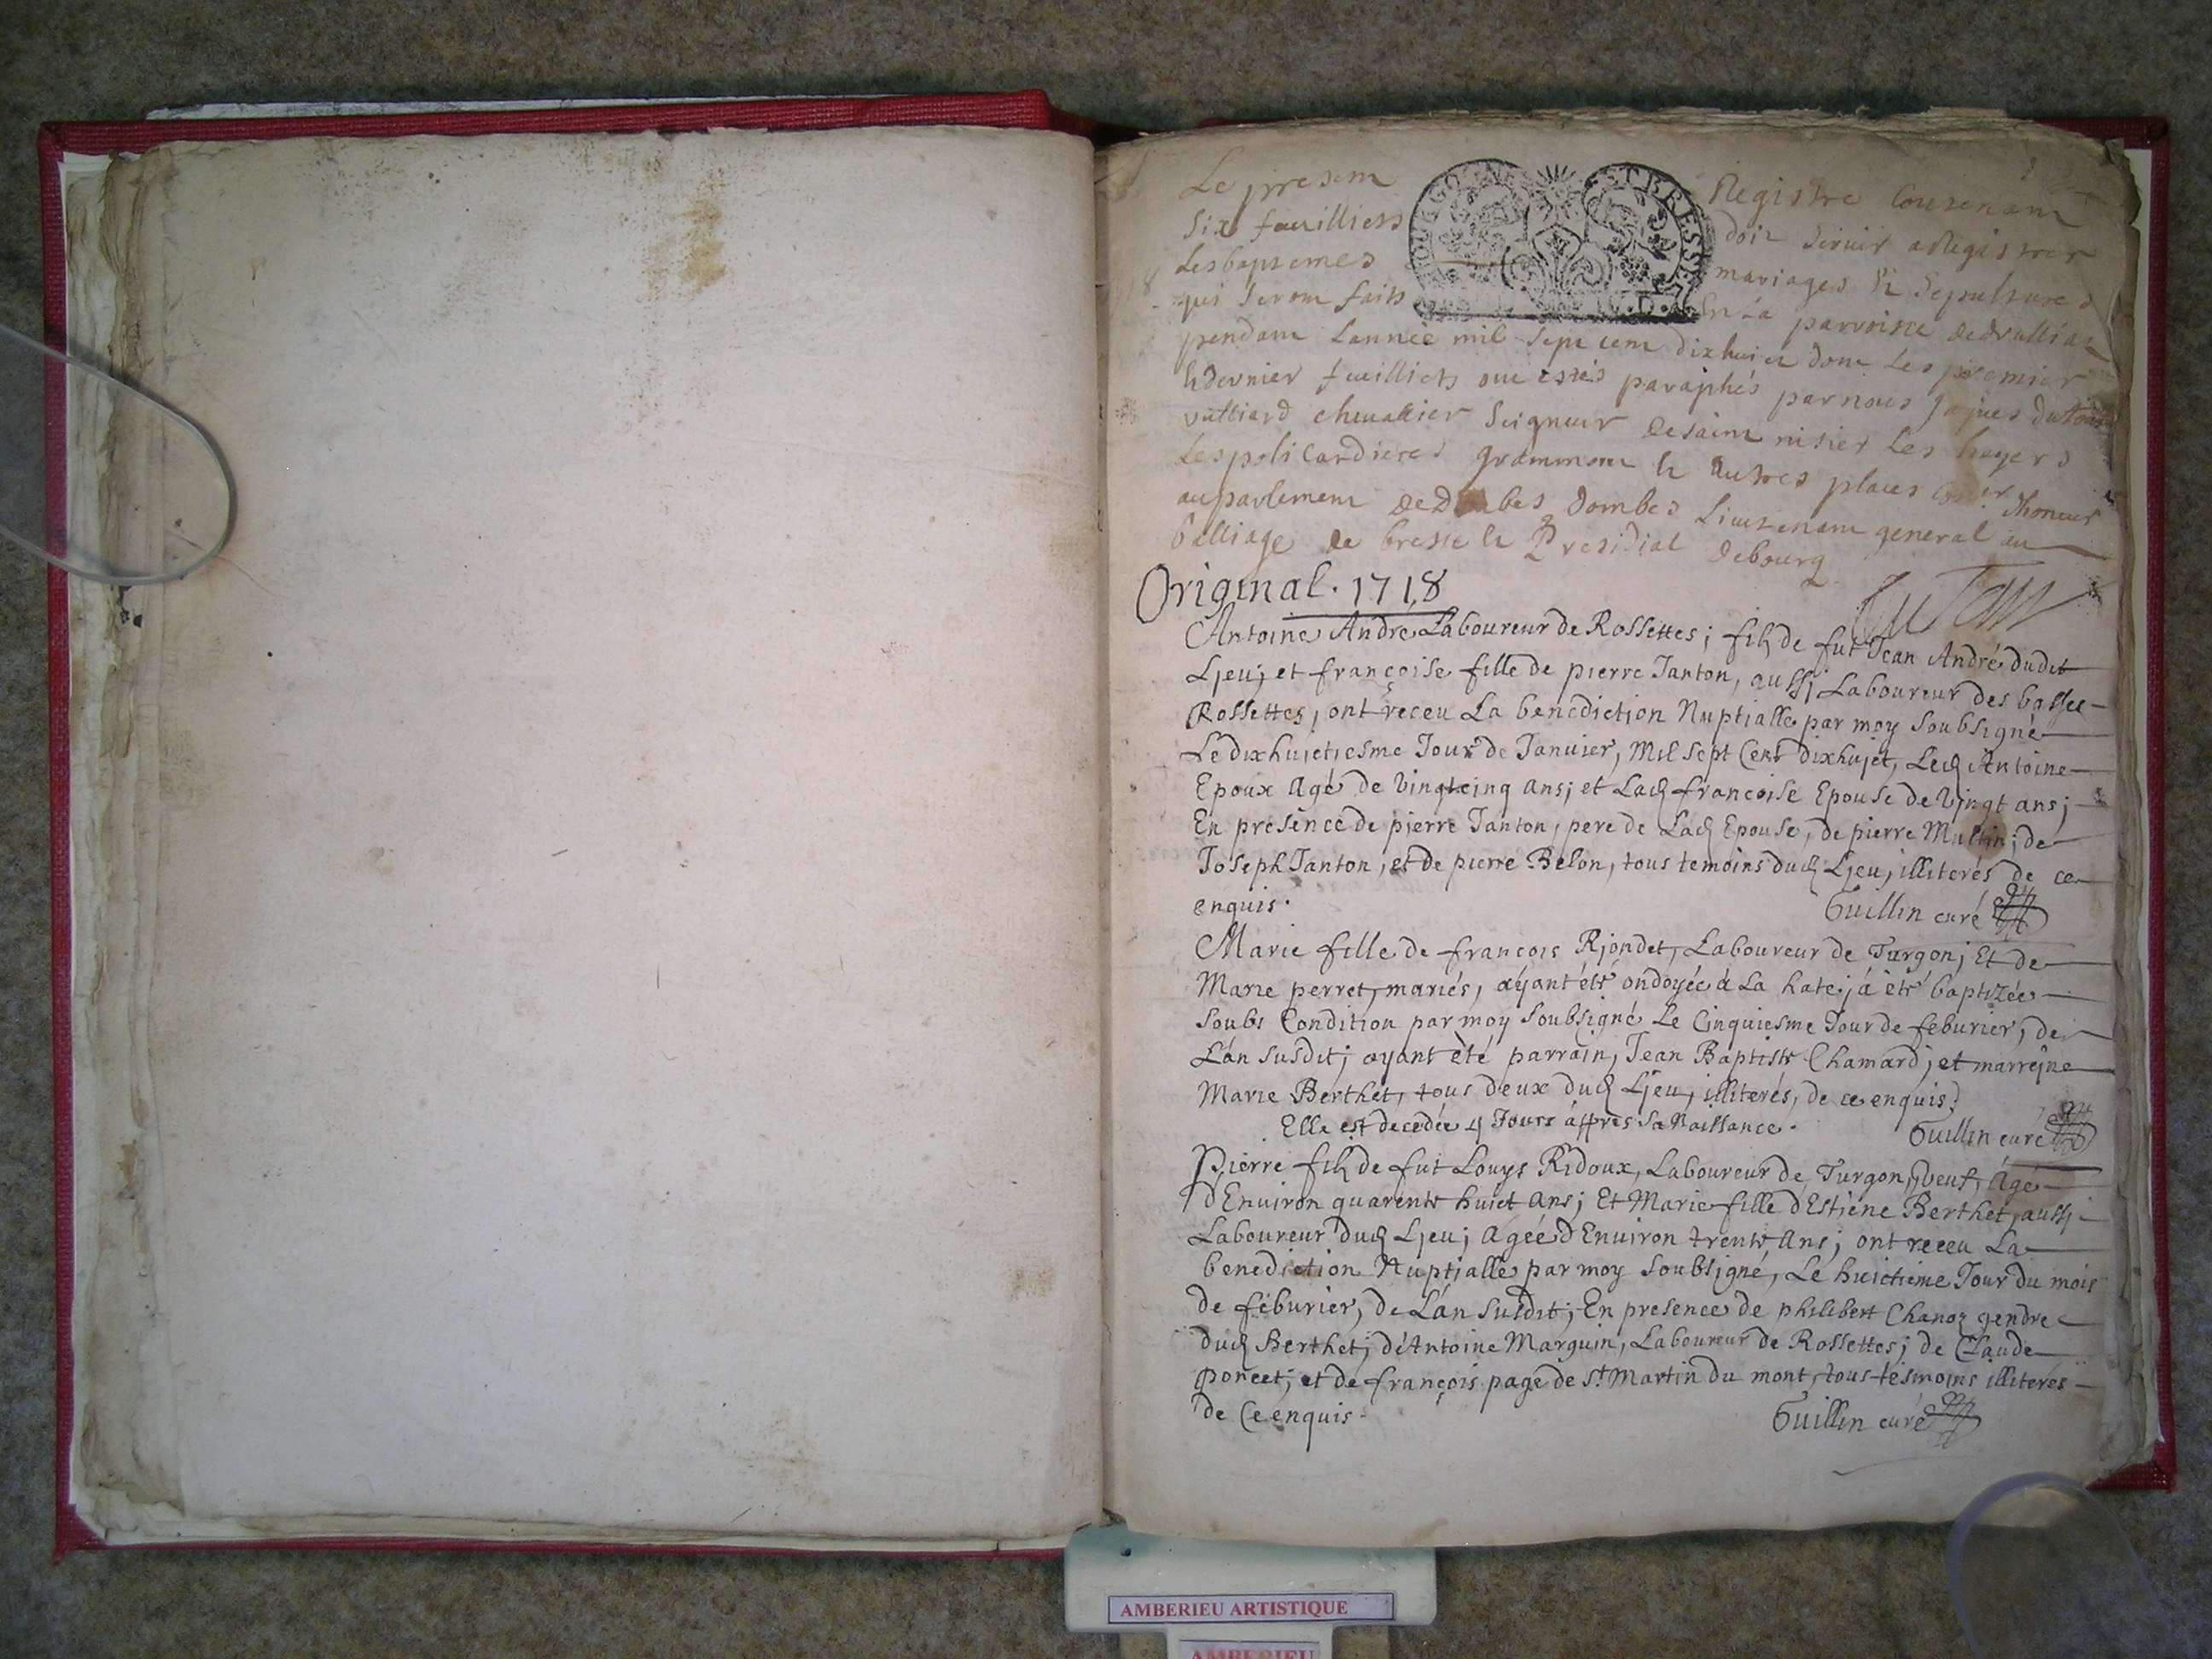 Le present Registre Contenant
six feuilliets doit servir a Registrer
Les baptemes mariages & sepultures
qui seront faits En La parroisse de druillia
pendant Lannée mil sept cent dixhuict dont Les premier
& dernier feuilliets ont estés paraphés par nous Jaques dutour
vulliard chevallier Seigneur de saint nisier Les
Les policardieres grammont & autres places dhoneur
au parlement de Dombes Lieutenant general au
balliage de bresse & Presidial de bourg
Original. 1718
Dutour
Antoine André Laboureur de Rossettes; filz de fut Jean André dudit
Ljeu; et françoise fille de pierre Tanton, aussj Laboureur des basses
Rossettes, ont receu La benediction Nuptialle par moy soubsigné
Le dixhuictiesme Jour de Januier, Mil sept Cent dixhujet, Led Antoine
Epoux Agé de Vingtcinq ans; et Lad francoise Epouse de Vingt ans;
En présence de pierre Tanton, pere de Lad Epouse, de pierre Multin; de
Joseph Tanton, et de pierre Belon, tous temoins dud Ljeu, illiterés de ce
enquis.
Guillin curé
Marie fille de francois Rjondet, Laboureur de Turgon; Et de
Marie perret, mariés, aÿant été ondoyée à La hate; á êté baptizée
soubs Condition par moy soubsigné Le Cinquiesme Jour de feburier, de
L'án susdit; ayant été parrain, Jean Baptiste Chamard; et marrejne
Marie Berthet, tous deux dud Ljeu, illiterés, de ce enquis.
Elle est decedée 4 Jours áppres sa Naissance.
Guillin curé
Pierre filz de fut Louys Ridoux, Laboureur de Turgon, veuf, Agé
d'Enuiron quarente huict ans; Et Marie fille d'Estiene Berthet, aussj
Laboureur dud Ljeu; Agée d'Enuiron trente Ans; ont receu La
benediction Nuptjalle par moy soubsigné, Le huictieme Jour du mois
de féburier, de L'án susdit; En presence de philibert Chanoz gendre
dud Berthet; d'Antoine Marguin, Laboureur de Rossettes; de Claude
poncet; et de françois page de St Martin du mont, tous tésmoins illiterés
de Ce enquis.
Guillin curé
AMBERIEU ARTISTIQUE
AMBERIEU